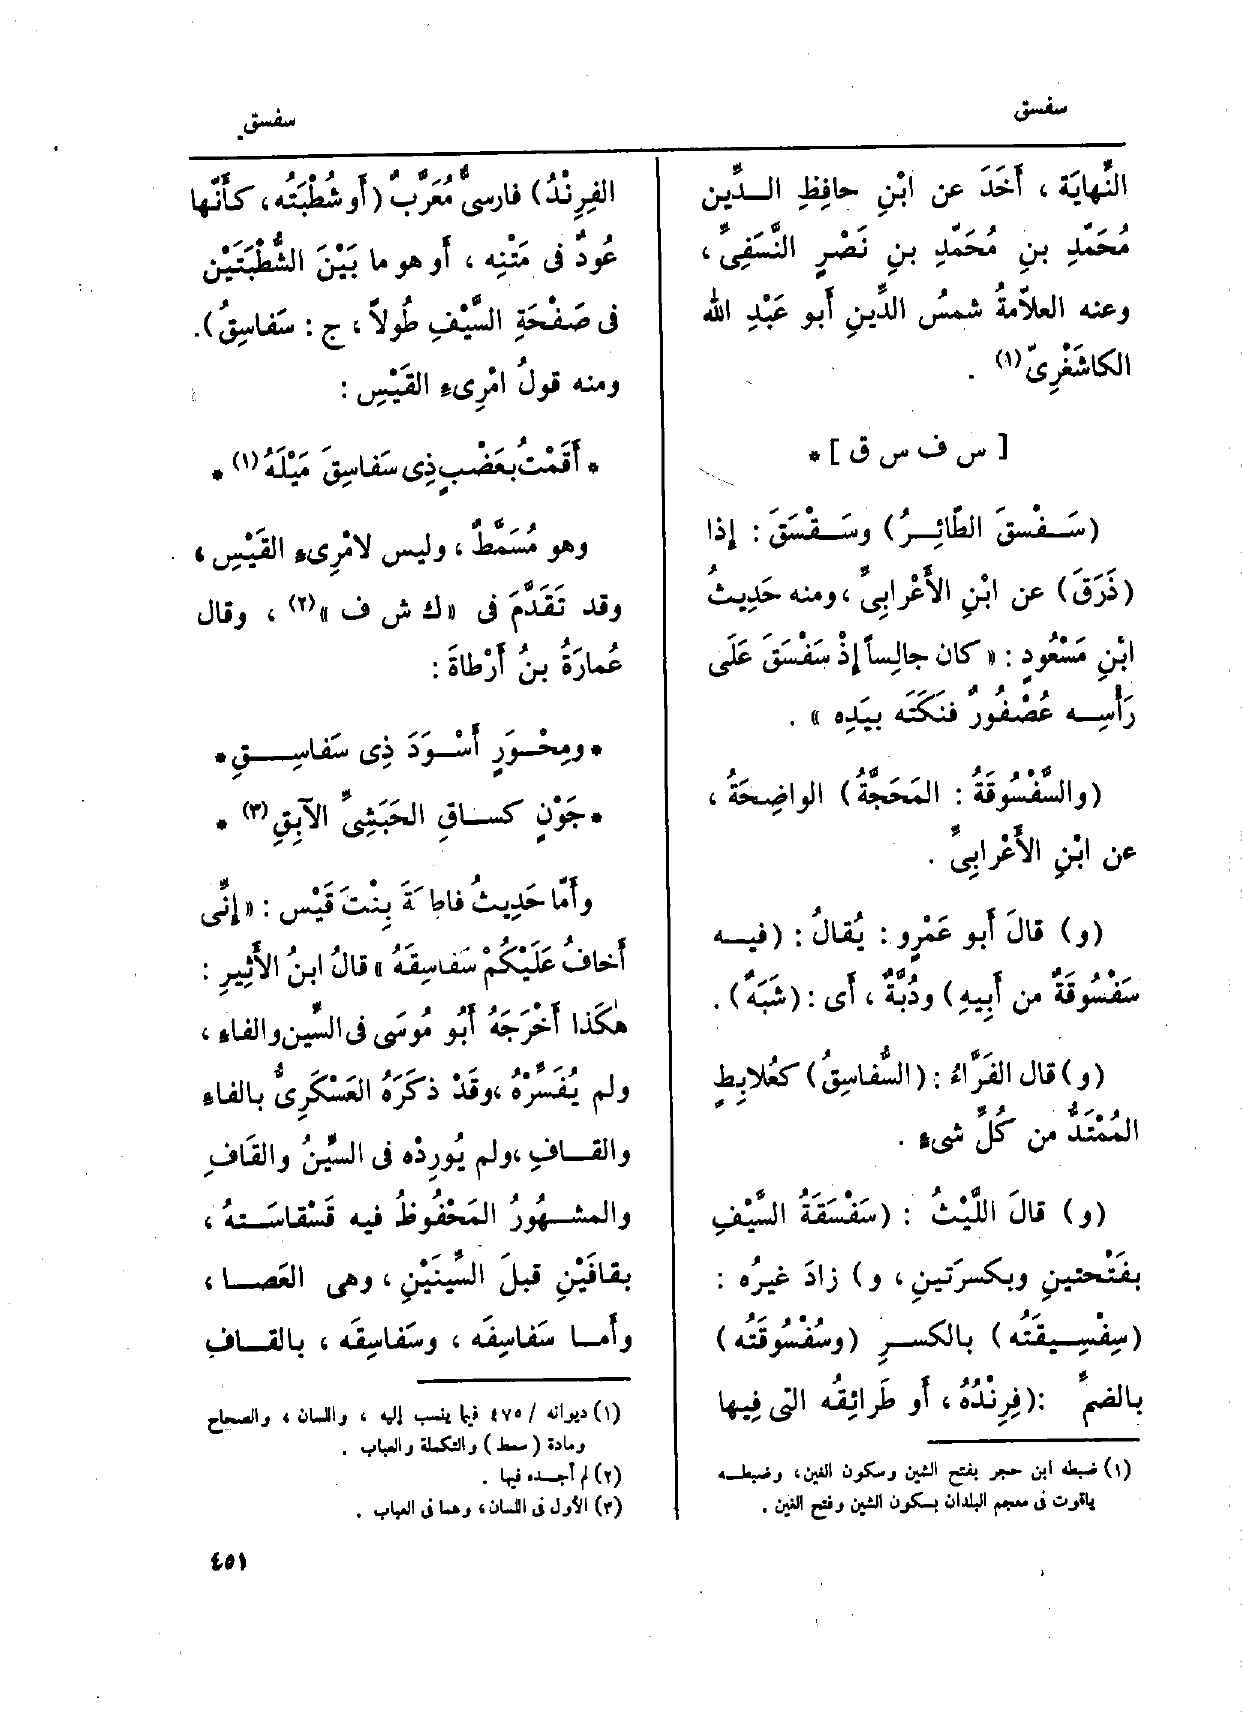 سفسق
سفسق
النِّهايَة ، أَخَذَ عن ابْنِ حافِظِ الــدِّين
مُحَمَّدِ بنِ مُحَمَّدِ بنِ نَصْرٍ النَّسَفِىِّ ،
وعنه العلاّمةُ شمسُ الدِّينِ أبو عَبْدِ الله
الكاشَغْرِىّ (١) .
[ س ف س ق ] *
(سَــفْسقَ الطّائِــرُ) وسَــقْسَقَ : إذا
(ذَرَقَ) عن ابْنِ الأَعْرابِىِّ ، ومنه حَدِيثُ
ابْنِ مَسْعُودٍ : « كان جالِساً إذْ سَفْسَقَ عَلَى
رَأْسِــه عُصْفُورٌ فنَكَتَه بيَدِه » .
(والسُّفْسُوقَةُ : المَحَجَّةُ) الواضِحَةُ ،
عن ابْنِ الأَعْرابِىِّ .
(و) قالَ أَبو عَمْرٍو : يُقالُ : (فيــه
سَفْسُوقَةٌ من أَبِيهِ) ودُبَّةٌ ، أى : (شَبَهٌ) .
(و) قال الفَرَّاءُ : (السُّفاسِقُ) كعُلابِطٍ
المُمْتَدُّ من كُلِّ شىءٍ .
(و) قالَ اللَّيْثُ : (سَفْسَقَةُ السَّيْفِ
بفَتْحتينِ وبكسرَتينِ ، و) زادَ غيرُه :
(سِفْسِــيقَتُه) بالكســرِ (وسُفْسُوقَتُه)
بالضمِّ : (فِرِنْدُهُ ، أو طَرائِقُه التى فِيها
(١) ضبطه ابن حجر بفتح الشين وسكون الغين ، وضبطــه
ياقوت فى معجم البلدان بسكون الشين وفتح الغين .
الفِرِنْدُ) فارسىٌّ مُعَرَّبٌ (أو شُطْبَتُه ، كأَنَّها
عُودٌ فى مَتْنِه ، أَو هو ما بَيْنَ الشُّطْبَتَيْنِ
فى صَفْحَةِ السَّيْفِ طُولاً ، ج : سَفاسِقُ) .
ومنه قولُ امْرِىءِ القَيْسِ :
* أَقَمْتُ بعَضْبٍ ذِى سَفاسِقَ مَيْلَهُ (١) *
وهو مُسَمَّطٌ ، وليس لامْرِىءِ القَيْسِ ،
وقد تَقَدَّمَ فى « ك ش ف » (٢) ، وقال
عُمارَةُ بنُ أَرْطاةَ :
* ومِحْــوَرٍ أَسْــوَدَ ذِى سَفاسِــــقِ *
* جَوْنٍ كســاقِ الحَبَشِىِّ الآبِقِ (٣) *
وأَمّا حَدِيثُ فاطمَةَ بِنْتَ قَيْس : « إِنِّى
أَخافُ عَلَيْكُمْ سَفاسِقَهُ » قالُ ابنُ الأَثِيرِ :
هٰكَذا أَخْرَجَهُ أَبُو مُوسَى فى السِّين والفاءِ ،
ولم يُفَسِّرْهُ ، وقَدْ ذَكَرَهُ العَسْكَرِىُّ بالفاءِ
والقــافِ ، ولم يُورِدْه فى السِّينُ والقَافِ
والمشــهُورُ المَحْفُوظُ فيه قَسْقاسَــتهُ ،
بقافَيْنِ قبلَ السِّينَيْنِ ، وهى العَصــا ،
وأَمــا سَفاسِفَه ، وسَفاسِقَه ، بالقــافِ
(١) ديوانه / ٤٧٥ فيما ينسب إليه ، واللسان ، والصحاح
ومادة (سمط) والتكملة والعباب .
(٢) لم أجده فيها .
(٣) الأول فى اللسان ، وهما فى العباب .
٤٥١